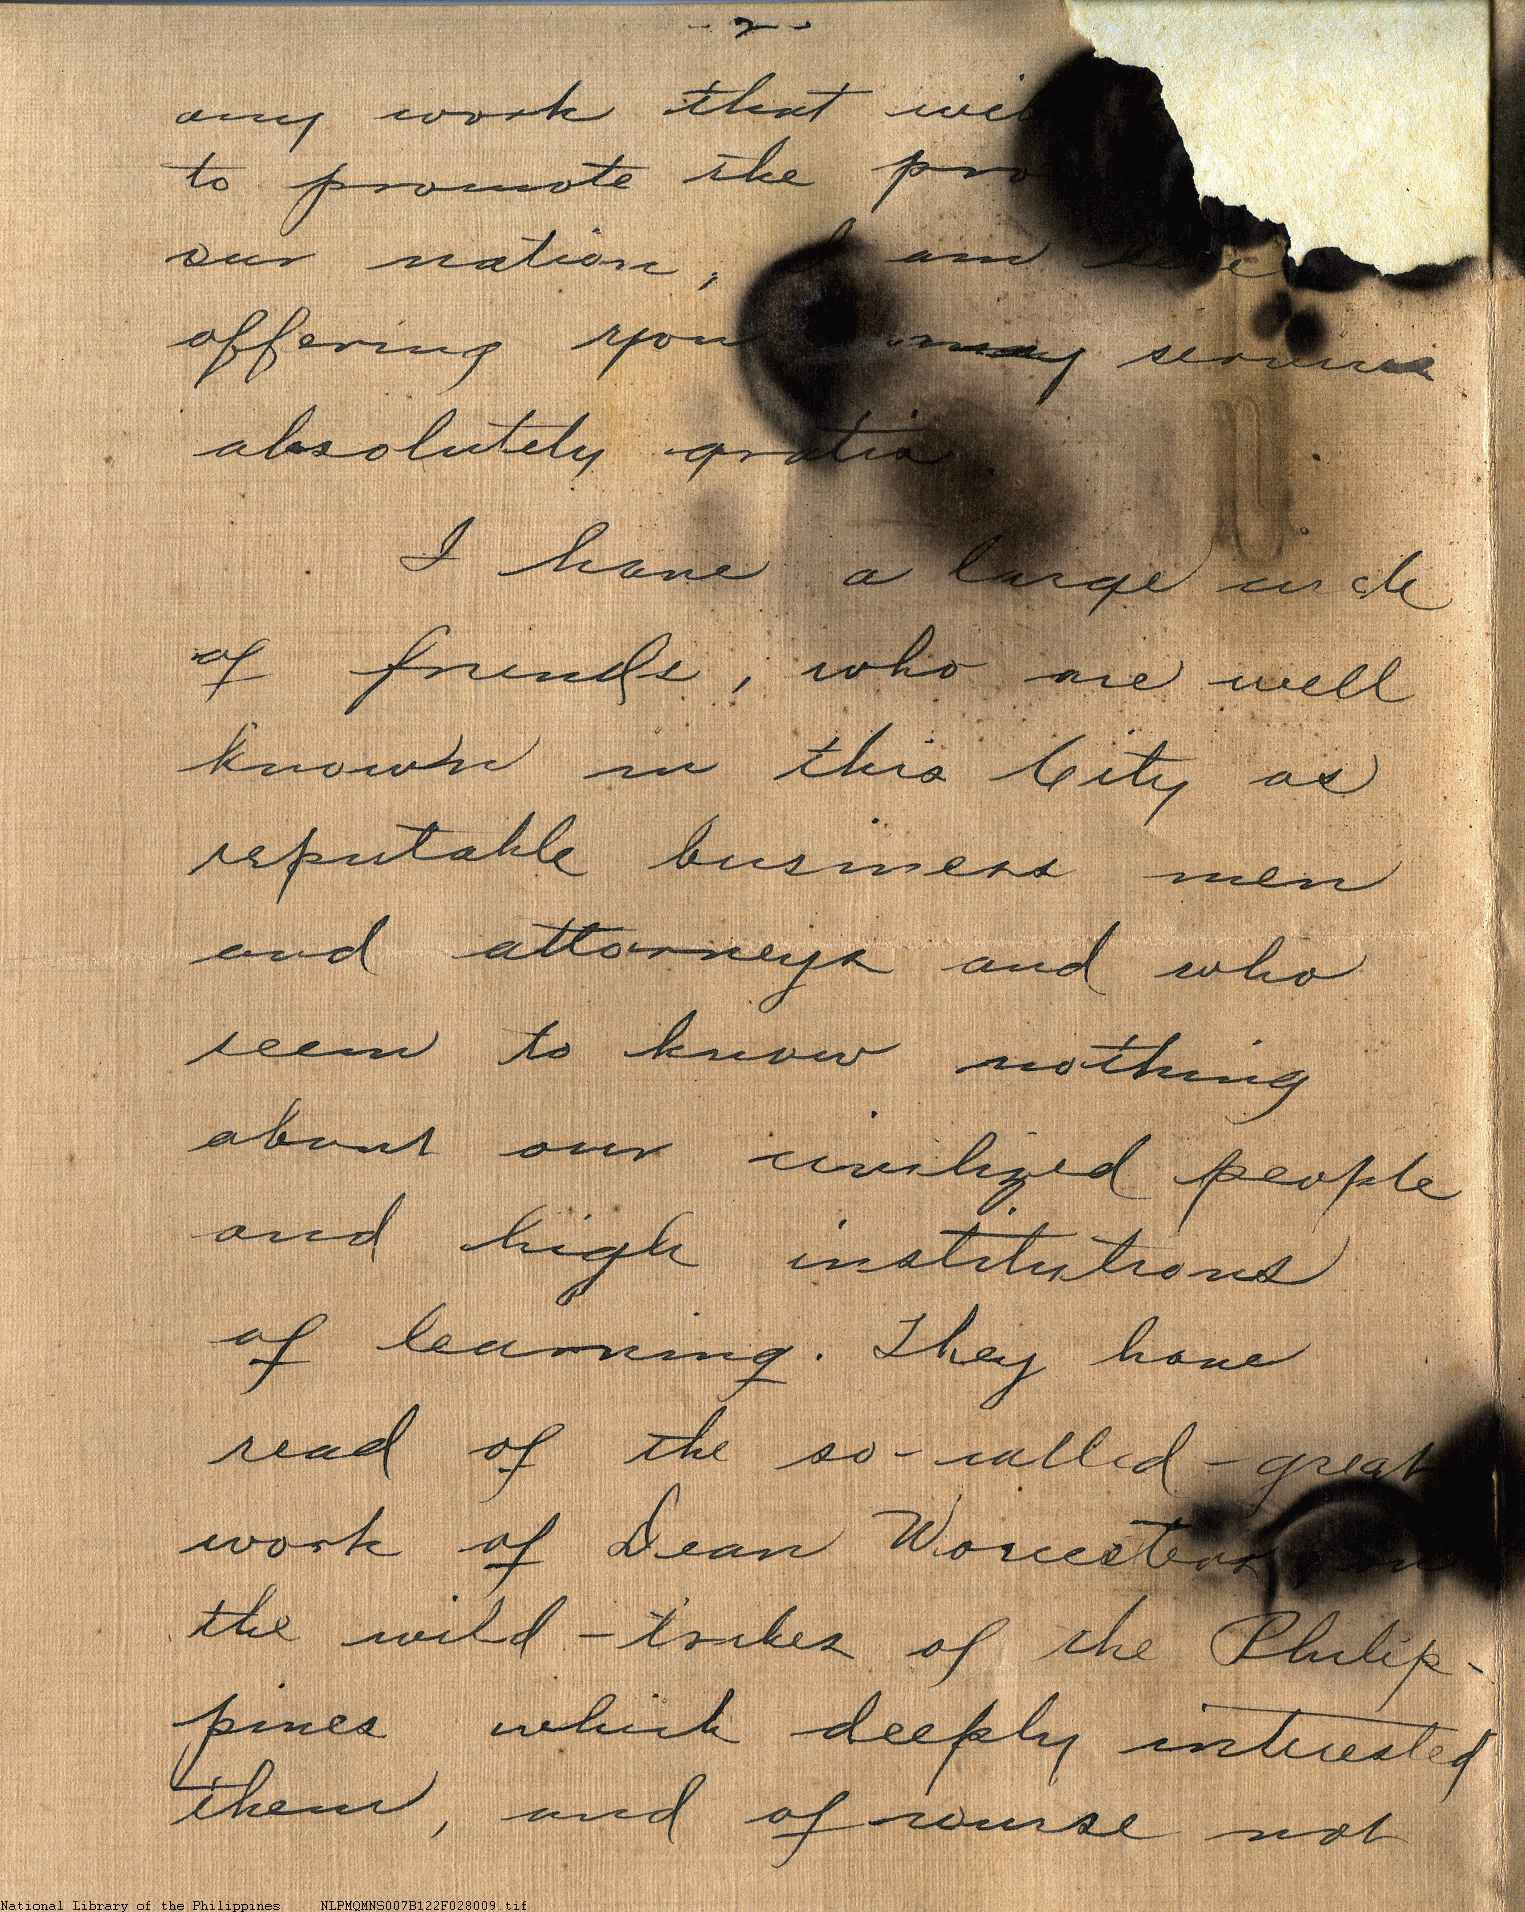 - 2 -
any work that
to promote the
our nation, I am here
offering you my service
absolutely gratis.
I have a large circle
of friends, who are well
known in this City as
reputable business men
and attorneys and who
seem to know nothing
about our civilized people
and high institutions
of learning. They have
read of the so-called-great
work of Dean Worcester
the wild-tribes of the Philip-
pines which deeply interested
them, and of course not
National Library of the Philippines NLPMQMNS007B122F028009.tif